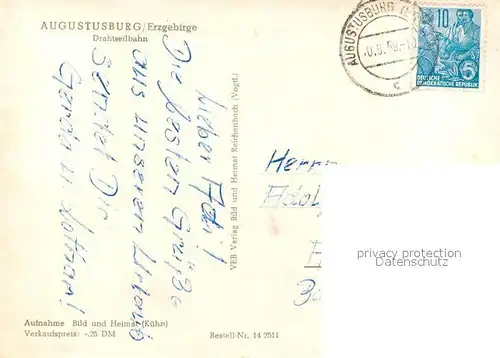 AUGUSTUSBURG/Erzgebirge
Drahtseilbahn
Lieber Adi!
Die besten Grüße
aus unserem Urlaub
sendet Dir
Gerda u. Lothar!
VEB Verlag Bild und Heimat Reichenbach (Vogtl.)
Aufnahme Bild und Heimat (Kühn)
Verkaufspreis: -.25 DM
Bestell-Nr. 14 2511
AUGUSTUSBURG
10
5
DEUTSCHE
DEMOKRATISCHE REPUBLIK
Herrn
Adol
privacy protection
Datenschutz